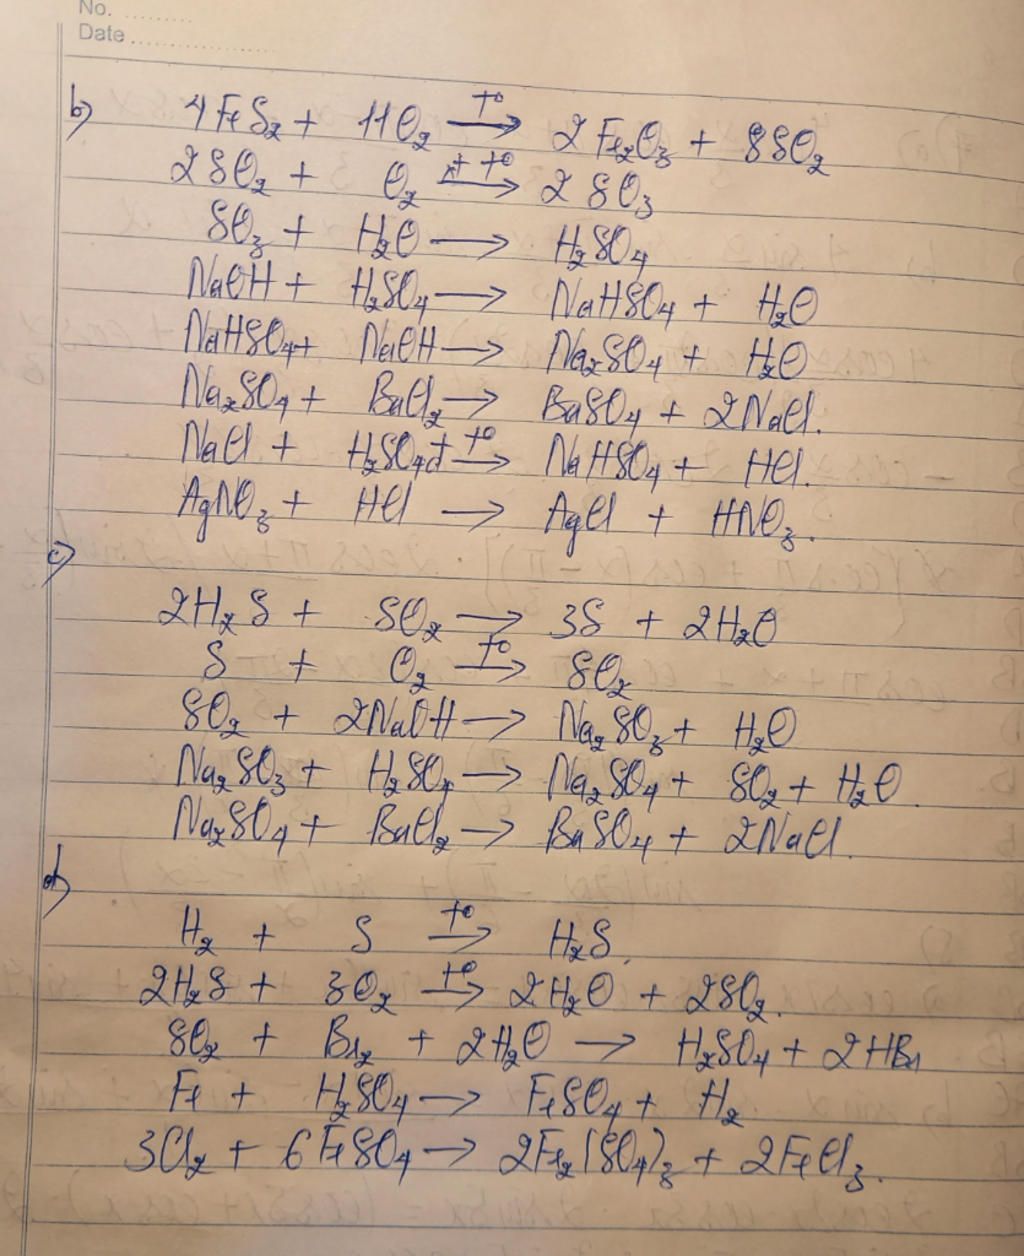 No. ..........
Date ......................
b) 4FeS₂ + 11O₂ —t°→ 2Fe₂O₃ + 8SO₂
2SO₂ + O₂ —xt t°→ 2SO₃
SO₃ + H₂O → H₂SO₄
NaOH + H₂SO₄ → NaHSO₄ + H₂O
NaHSO₄ + NaOH → Na₂SO₄ + H₂O
Na₂SO₄ + BaCl₂ → BaSO₄ + 2NaCl.
NaCl + H₂SO₄đ —t°→ NaHSO₄ + HCl.
AgNO₃ + HCl → AgCl + HNO₃.
c)
2H₂S + SO₂ → 3S + 2H₂O
S + O₂ —t°→ SO₂
SO₂ + 2NaOH → Na₂SO₃ + H₂O
Na₂SO₃ + H₂SO₄ → Na₂SO₄ + SO₂ + H₂O.
Na₂SO₄ + BaCl₂ → BaSO₄ + 2NaCl.
d)
H₂ + S —t°→ H₂S.
2H₂S + 3O₂ —t°→ 2H₂O + 2SO₂.
SO₂ + Br₂ + 2H₂O → H₂SO₄ + 2HBr
Fe + H₂SO₄ → FeSO₄ + H₂
3Cl₂ + 6FeSO₄ → 2Fe₂(SO₄)₃ + 2FeCl₃.